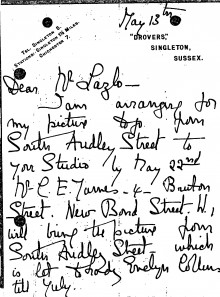 May 13th
TEL: SINGLETON
STATION: SINGLETON 2½ MILES.
CHICHESTER 7.
"DROVERS,"
SINGLETON,
SUSSEX.
Dear Mr Lazlo -
I am arranging for
my picture to go from
South Audley Street to
your Studio by May 22nd
Mr C. E.
Street. New Bond Street W,
will bring the picture from
South Audley Street which
is let to Lady Evelyn
till July.